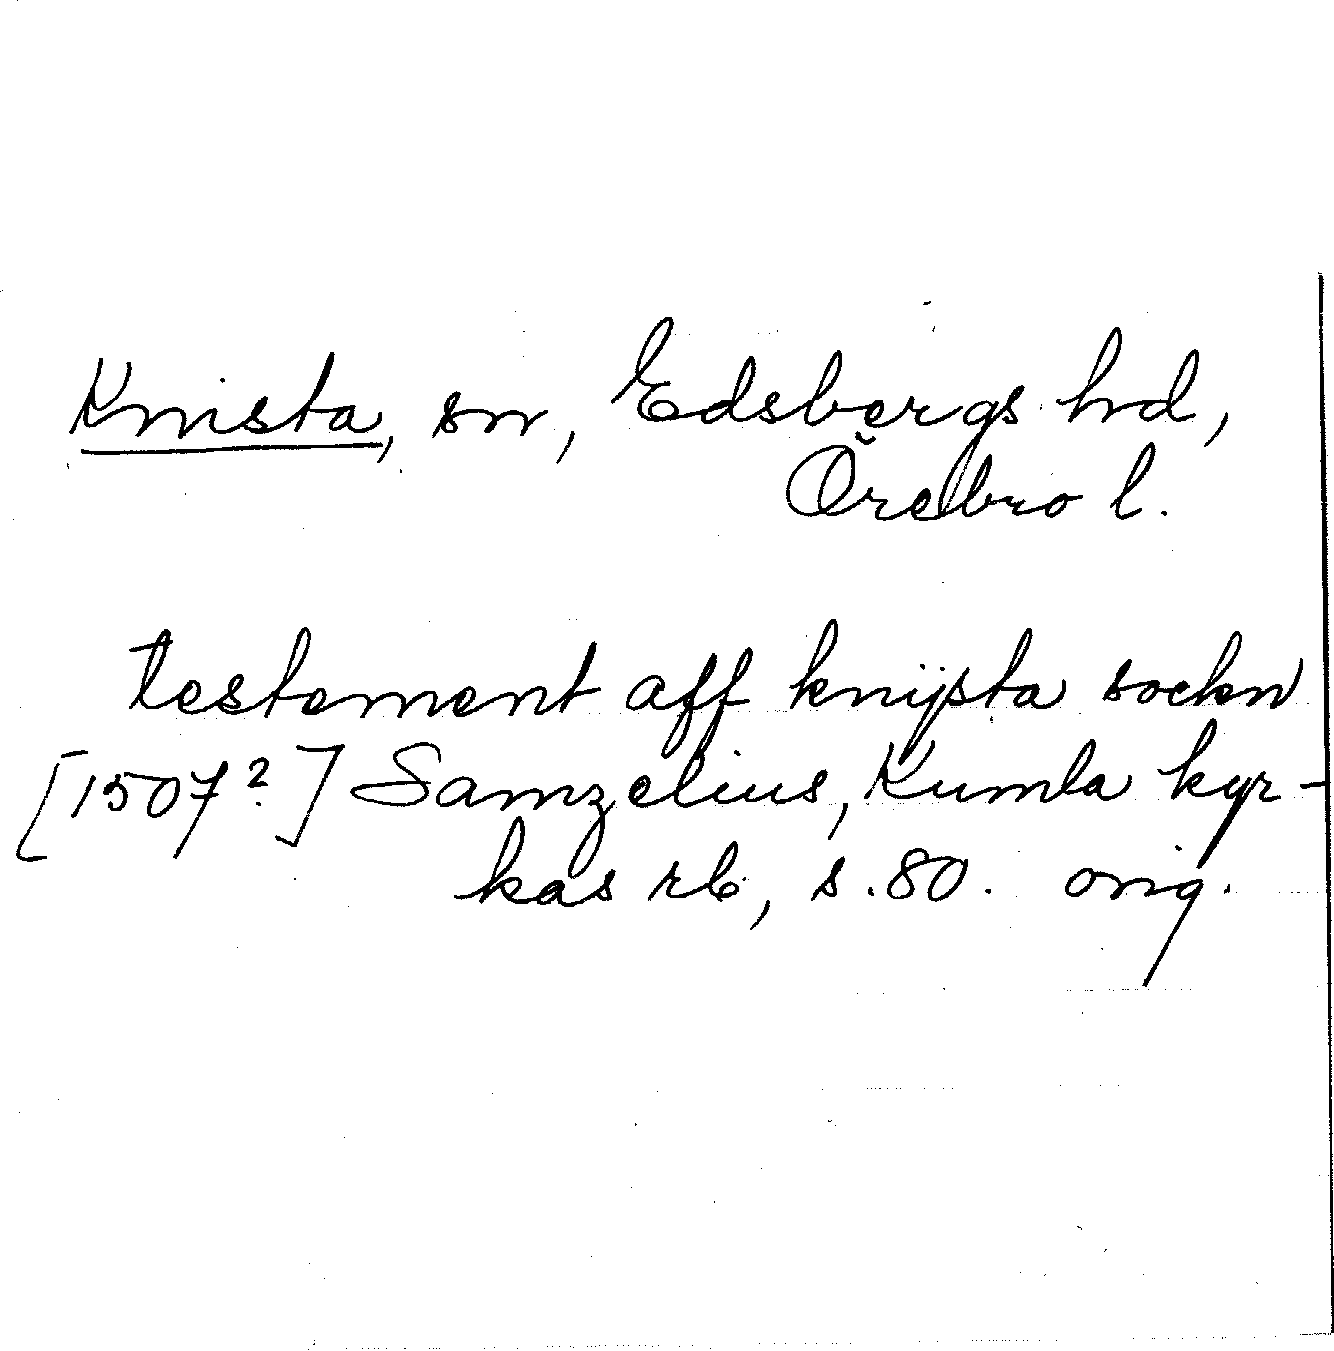 Knista, sn, Edsbergs hd,
Örebro l.
testement aff knijsta sockn
[1507?] Samzelius, Kumla kyr-
kas rb, s. 80. orig.